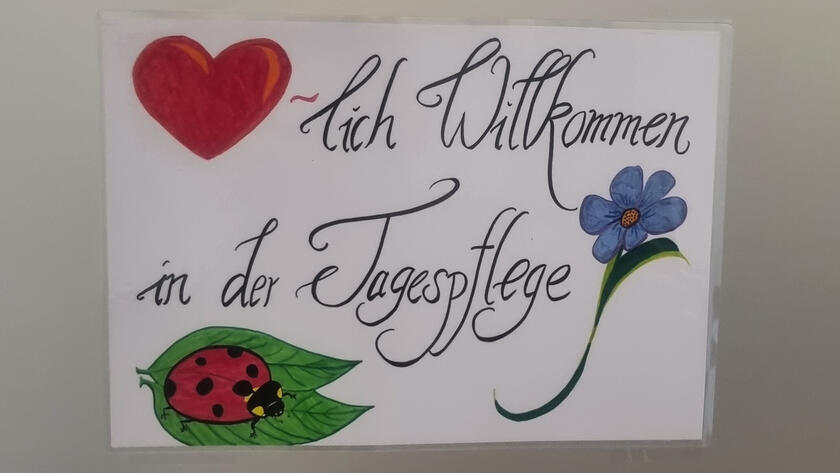 ~lich Willkommen
in der Tagespflege